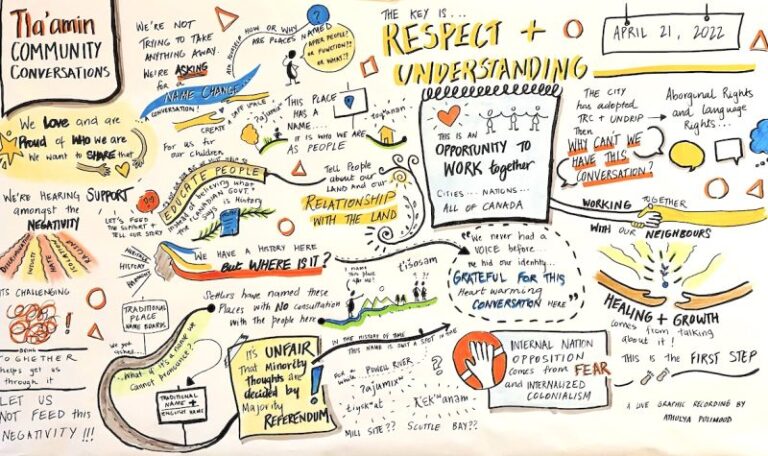 Tla'amin
COMMUNITY
CONVERSATIONS
WE'RE NOT
TRYING TO TAKE
ANYTHING AWAY.
WE'RE ASKING
for a
NAME CHANGE...
CONVERSATION!
HOW OR WHY
ARE PLACES NAMED
AFTER PEOPLE?
OR FUNCTION??
OR WHAT??
THE KEY IS...
RESPECT +
UNDERSTANDING
APRIL 21, 2022
We Love and are
Proud of WHO We are
We want to SHARE that
CREATE
SAFE SPACE
For us for
our children
THIS PLACE
HAS A
NAME...
IT IS WHO WE ARE
AS PEOPLE
THIS IS AN
OPPORTUNITY TO
WORK together
CITIES... NATIONS...
ALL OF CANADA
THE CITY
has adopted
TRC + UNDRIP
Then
WHY CAN'T WE
HAVE THIS
CONVERSATION?
Aboriginal Rights
and Language
Rights...
WE'RE HEARING SUPPORT
amongst the
NEGATIVITY
LET'S FEED
THE SUPPORT +
TELL OUR STORY
EDUCATE PEOPLE
Instead of believing what
CANADIAN GOVT.
Says is History
Tell People
about our
LAND and our
RELATIONSHIP
WITH THE LAND
WORKING TOGETHER
WITH OUR NEIGHBOURS
WE HAVE A HISTORY HERE
But WHERE IS IT?
We never had a
VOICE before...
We hid our identity...
GRATEFUL FOR THIS
Heart warming
CONVERSATION HERE
HEALING + GROWTH
comes from talking
about it!
THIS IS THE FIRST STEP
ITS CHALLENGING
TOGHETHER
helps get us
through it
LET US
NOT FEED this
NEGATIVITY!!!
TRADITIONAL
PLACE
NAME BOARDS
Settlers have named these
Places with NO consultation
with the people here
I name
this place
after me!
tišosəm
...what if it's a name we
cannot pronounce?
TRADITIONAL
NAME +
ENGLISH NAME
IT'S UNFAIR
That Minority
thoughts are
decided by
Majority
REFERENDUM
IN THE HISTORY OF TIME
THIS NAME IS JUST A SPOT IN TIME
POWELL RIVER
MILL SITE?? SCUTTLE BAY??
INTERNAL NATION
OPPOSITION
comes from FEAR
and INTERNALIZED
COLONIALISM
A LIVE GRAPHIC RECORDING BY
ATHULYA PULIMOOD